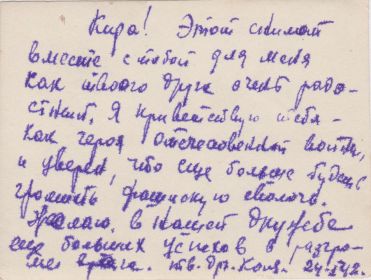 Кира! Этот снимок
вместе с тобой для меня
как твоего друга очень радо-
стный. Я приветствую тебя-
как героя отечественной войны,
и уверен, что еще больше будешь
громить фашискую сволочь.
Желаю, в нашей дружбе
еще больших успехов в разгро-
ме врага. тв. др. Коля.